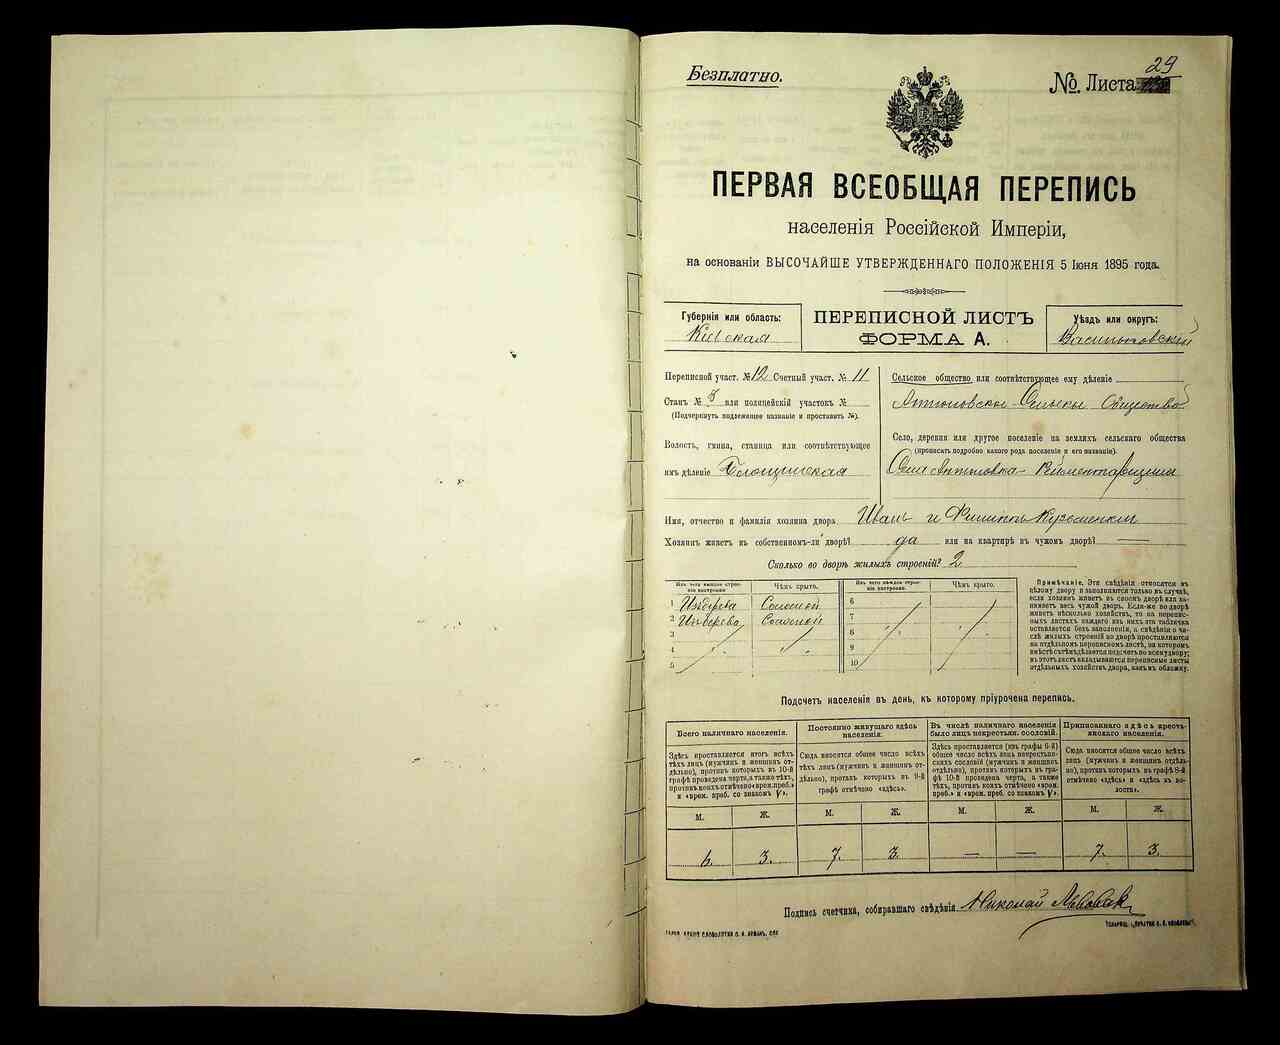 Безплатно.
29
№. Листа
ПЕРВАЯ ВСЕОБЩАЯ ПЕРЕПИСЬ
населенія Россійской Имперіи,
на основаніи ВЫСОЧАЙШЕ УТВЕРЖДЕННАГО ПОЛОЖЕНІЯ 5 Іюня 1895 года.
Губернія или область:
Кіевская
ПЕРЕПИСНОЙ ЛИСТЪ
ФОРМА А.
Уѣздъ или округъ:
Васильковскій
Переписной участ. № 12 Счетный участ. № 11
Станъ № 3 или полицейскій участокъ №
(Подчеркнуть подлежащее названіе и проставить №).
Волость, гмина, станица или соотвѣтствующее
имъ дѣленіе
Сельское общество или соотвѣтствующее ему дѣленіе
Общество
Село, деревня или другое поселеніе на земляхъ сельскаго общества
(прописать подробно какого рода поселеніе и его названіе).
Село Антоновка-
Имя, отчество и фамилія хозяина двора Иванъ и Филиппъ
Хозяинъ живетъ въ собственномъ-ли дворѣ? да или на квартирѣ въ чужомъ дворѣ? —
Сколько во дворѣ жилыхъ строеній? 2
Изъ чего каждое строеніе построено. Чѣмъ крыто.
1 Издерева Соломой
2 Издерева Соломой
3
4
5
Изъ чего каждое строеніе построено. Чѣмъ крыто.
6
7
8
9
10
Примѣчаніе. Эти свѣдѣнія относятся къ
цѣлому двору и заполняются только въ случаѣ,
если хозяинъ живетъ въ своемъ дворѣ или занимаетъ
весь чужой дворъ. Если-же во дворѣ
живетъ нѣсколько хозяйствъ, то на переписныхъ
листахъ каждаго изъ нихъ эта табличка
оставляется безъ заполненія, а свѣдѣнія о числѣ
жилыхъ строеній во дворѣ проставляются
на отдѣльномъ переписномъ листѣ, на которомъ
вмѣстѣ съ тѣмъ дѣлается подсчетъ по всему двору;
въ этотъ листъ вкладываются переписные листы
отдѣльныхъ хозяйствъ двора, какъ въ обложку.
Подсчетъ населенія въ день, къ которому пріурочена перепись.
Всего наличнаго населенія.
Здѣсь проставляется итогъ всѣхъ
тѣхъ лицъ (мужчинъ и женщинъ отдѣльно),
противъ которыхъ въ 10-й
графѣ проведена черта, а также тѣхъ,
противъ коихъ отмѣчено «врем. преб.»
и «врем. преб. со знакомъ V».
Постоянно живущаго здѣсь
населенія.
Сюда вносится общее число всѣхъ
тѣхъ лицъ (мужчинъ и женщинъ отдѣльно),
противъ которыхъ въ 9-й
графѣ отмѣчено «здѣсь».
Въ числѣ наличнаго населенія
было лицъ некрестьян. сословій.
Здѣсь проставляется (изъ графы 6-й)
общее число всѣхъ лицъ некрестьянскихъ
сословій (мужчинъ и женщинъ
отдѣльно), противъ которыхъ въ графѣ
10-й проведена черта, а также
тѣхъ, противъ коихъ отмѣчено «врем.
преб.» и «врем. преб. со знакомъ V».
Приписаннаго здѣсь крестьянскаго
населенія.
Сюда вносится общее число всѣхъ
лицъ (мужчинъ и женщинъ отдѣльно),
противъ которыхъ въ графѣ 8-й
отмѣчено «здѣсь» и «здѣсь въ волости».
М. Ж. М. Ж. М. Ж. М. Ж.
6. 3. 7. 3. — — 7. 3.
Подпись счетчика, собиравшаго свѣдѣнія Николай